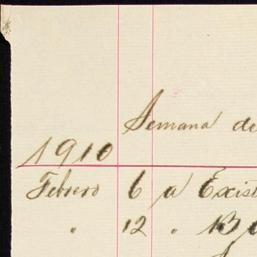 Semana de
1910
Febrero 6 a Exist
" 12 "